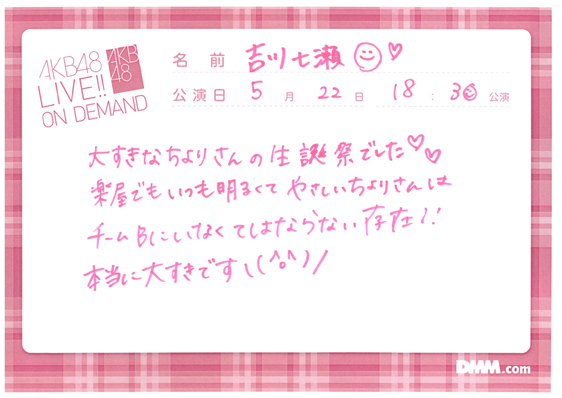 AKB48
LIVE!!
ON DEMAND
AKB
48
名前 吉川七瀬
公演日 5月22日 18:30公演
大すきなちよりさんの生誕祭でした♡♡
楽屋でもいつも明るくてやさしいちよりさんは
チームBにいなくてはならない存在!!
本当に大すきです\(^o^)/
DMM.com